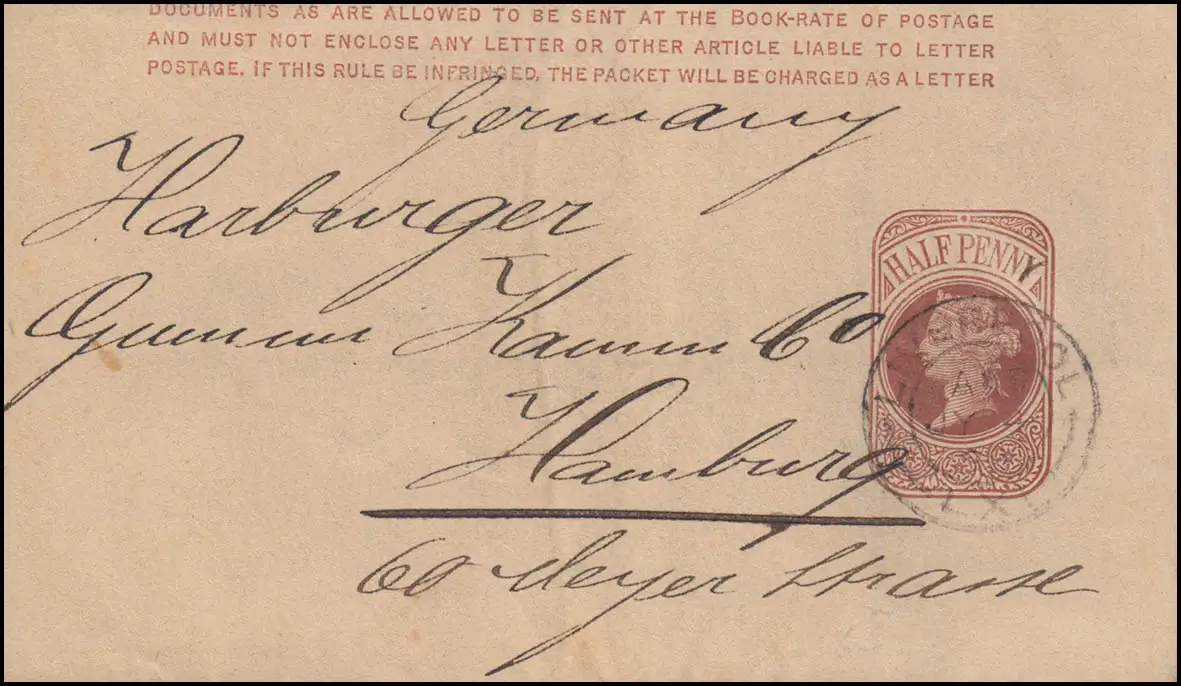 DOCUMENTS AS ARE ALLOWED TO BE SENT AT THE BOOK-RATE OF POSTAGE
AND MUST NOT ENCLOSE ANY LETTER OR OTHER ARTICLE LIABLE TO LETTER
POSTAGE. IF THIS RULE BE INFRINGED, THE PACKET WILL BE CHARGED AS A LETTER
Germany
Harburger
Gummi Kamm Co
Hamburg
60 Meyer Strasse
HALF PENNY
LIVERPOOL